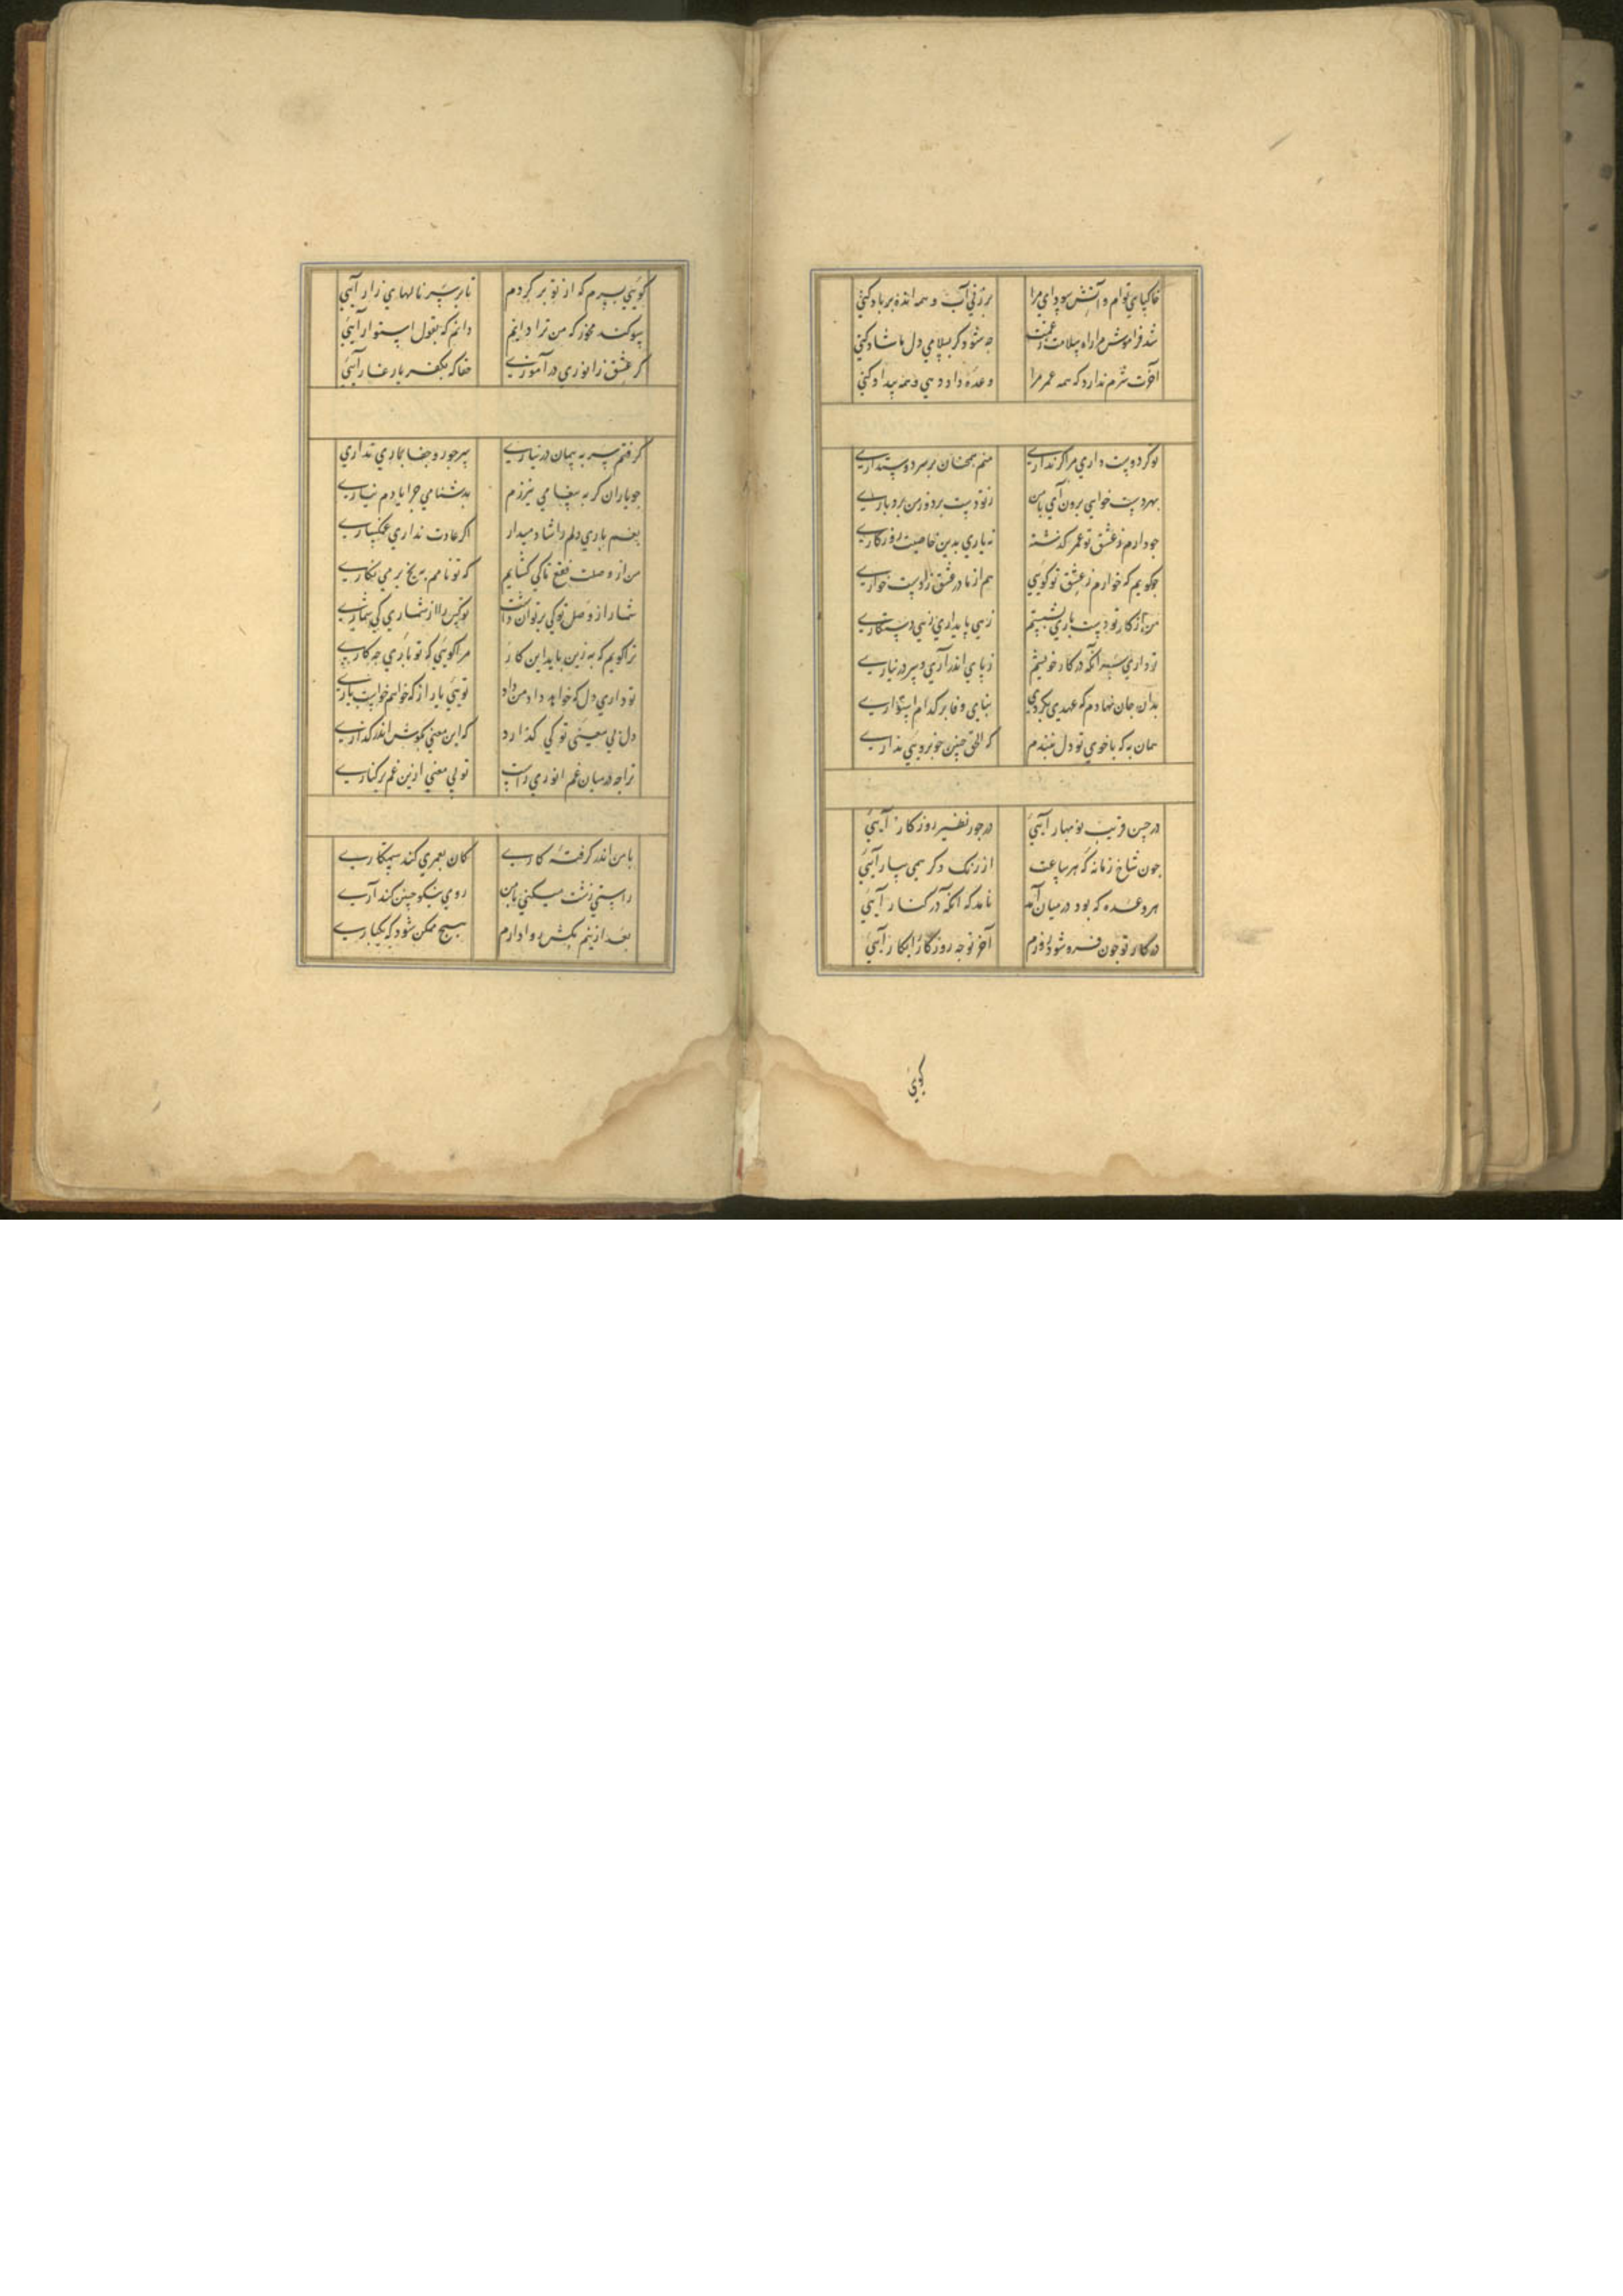 خاکپای توام و آتش سودای مرا    برزنی آب و همه انده بر باد کنی
شد فراموش مرا راه سلامت ز غمت    چه شود گر بسلامی دل ما شاد کنی
آخرت شرم ندارد که همه عمر مرا    وعده داد دهی و همه بیداد کنی
تو گر دوست داری مرا گر نداری    منم همچنان بر سر دوستداری
بهر دست خواهی برون آی با من    ز تو دست برد و ز من بردباری
چو دارم ز عشق تو عمر گذشته    نه یاری بدین خاصیت روزگاری
چگویم که خوارم ز عشق تو گویی    هم از مادر عشق زادست خواری
من از کار تو دست باری بشستم    زهی پایداری زهی دستکاری
نداری سر آنکه در کار خویشم    ز پای اندر آری و سر در نیاری
بدان جان نهادم که عهدی بکردی    بنای وفا بر کدام استواری
همان به که با خوی تو دل نبندم    که الحق چنین خوبرویی نداری
در حسن قریب نوبهار آیی    در جور نظیر روزگار آیی
چون شاخ زمانه که هر ساعت    از رنگ دگر همی ببار آیی
هر وعده که بود در میان آمد    نامد که آنکه در کنار آیی
در کار تو چون فرو شود روزم    آخر تو چه روز را بکار آیی
گویی
گویی سپرم که از تو برگردم    تا بر سر نالهای زار آیی
سوگند مخور که من ترا دانم    دانم که بقول استوار آیی
گر عشق ز انوری درآموزی    حقا که بکفر یار غار آیی
گرفتم سر به پیمان در نیاری    سر جور و جفا باری نداری
چو یاران گر به پیغامی نیرزم    بدشنامی چرا یادم نیاری
بغم باری دلم را شاد میدار    اگر عادت نداری غمگساری
من از وصلت فقع تا کی گشایم    که تو نامم به یخ بر می نگاری
شمار از وصل تو کی بر توان داشت    تو کس را از شماری کی شماری
ترا گویم که به زین باید این کار    مرا گویی که تو باری چه کاری
تو داری دل که خواهد داد من داد    تویی یار از که خواهم خواست یاری
دل بی معنیی تو کی گذارد    که این معنی بگوش اندر گذاری
ترا چه در میان غم انوری راست    تو بی معنی ازین غم بر کناری
با من اندر گرفته کاری    کان بعمری کند ستمکاری
راستی زشت میکنی با من    روی نیکو چنین کند آری
بعد ازینم بکش روا دارم    هیچ ممکن شود که یکباری